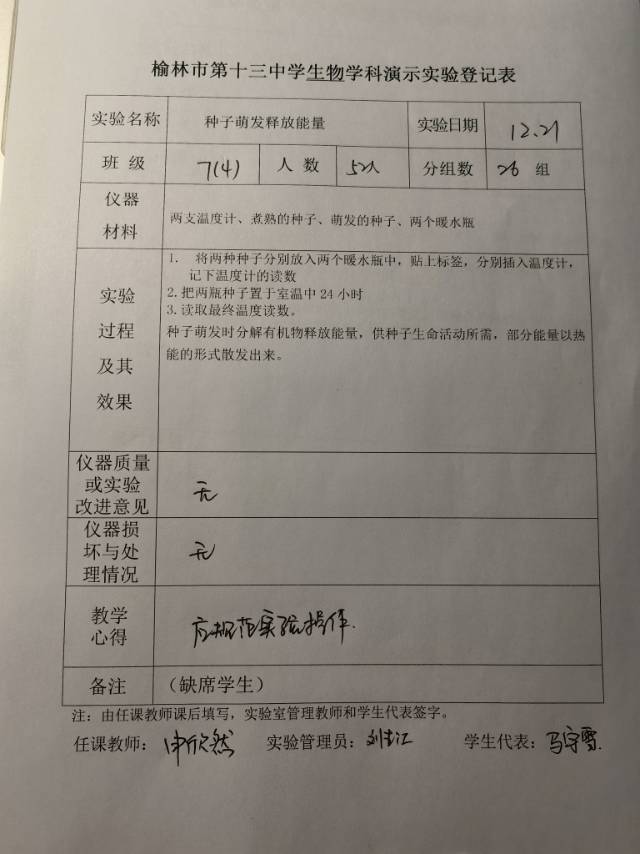 榆林市第十三中学生物学科演示实验登记表
实验名称 种子萌发释放能量 实验日期 12.21
班 级 7(4) 人 数 52人 分组数 26 组
仪器
材料
两支温度计、煮熟的种子、萌发的种子、两个暖水瓶
实验
过程
及其
效果
1. 将两种种子分别放入两个暖水瓶中，贴上标签，分别插入温度计，
记下温度计的读数
2.把两瓶种子置于室温中 24 小时
3.读取最终温度读数。
种子萌发时分解有机物释放能量，供种子生命活动所需，部分能量以热
能的形式散发出来。
仪器质量
或实验
改进意见
无
仪器损
坏与处
理情况
无
教学
心得
应规范实验操作.
备注 （缺席学生）
注：由任课教师课后填写，实验室管理教师和学生代表签字。
任课教师： 申欣然 实验管理员： 学生代表：